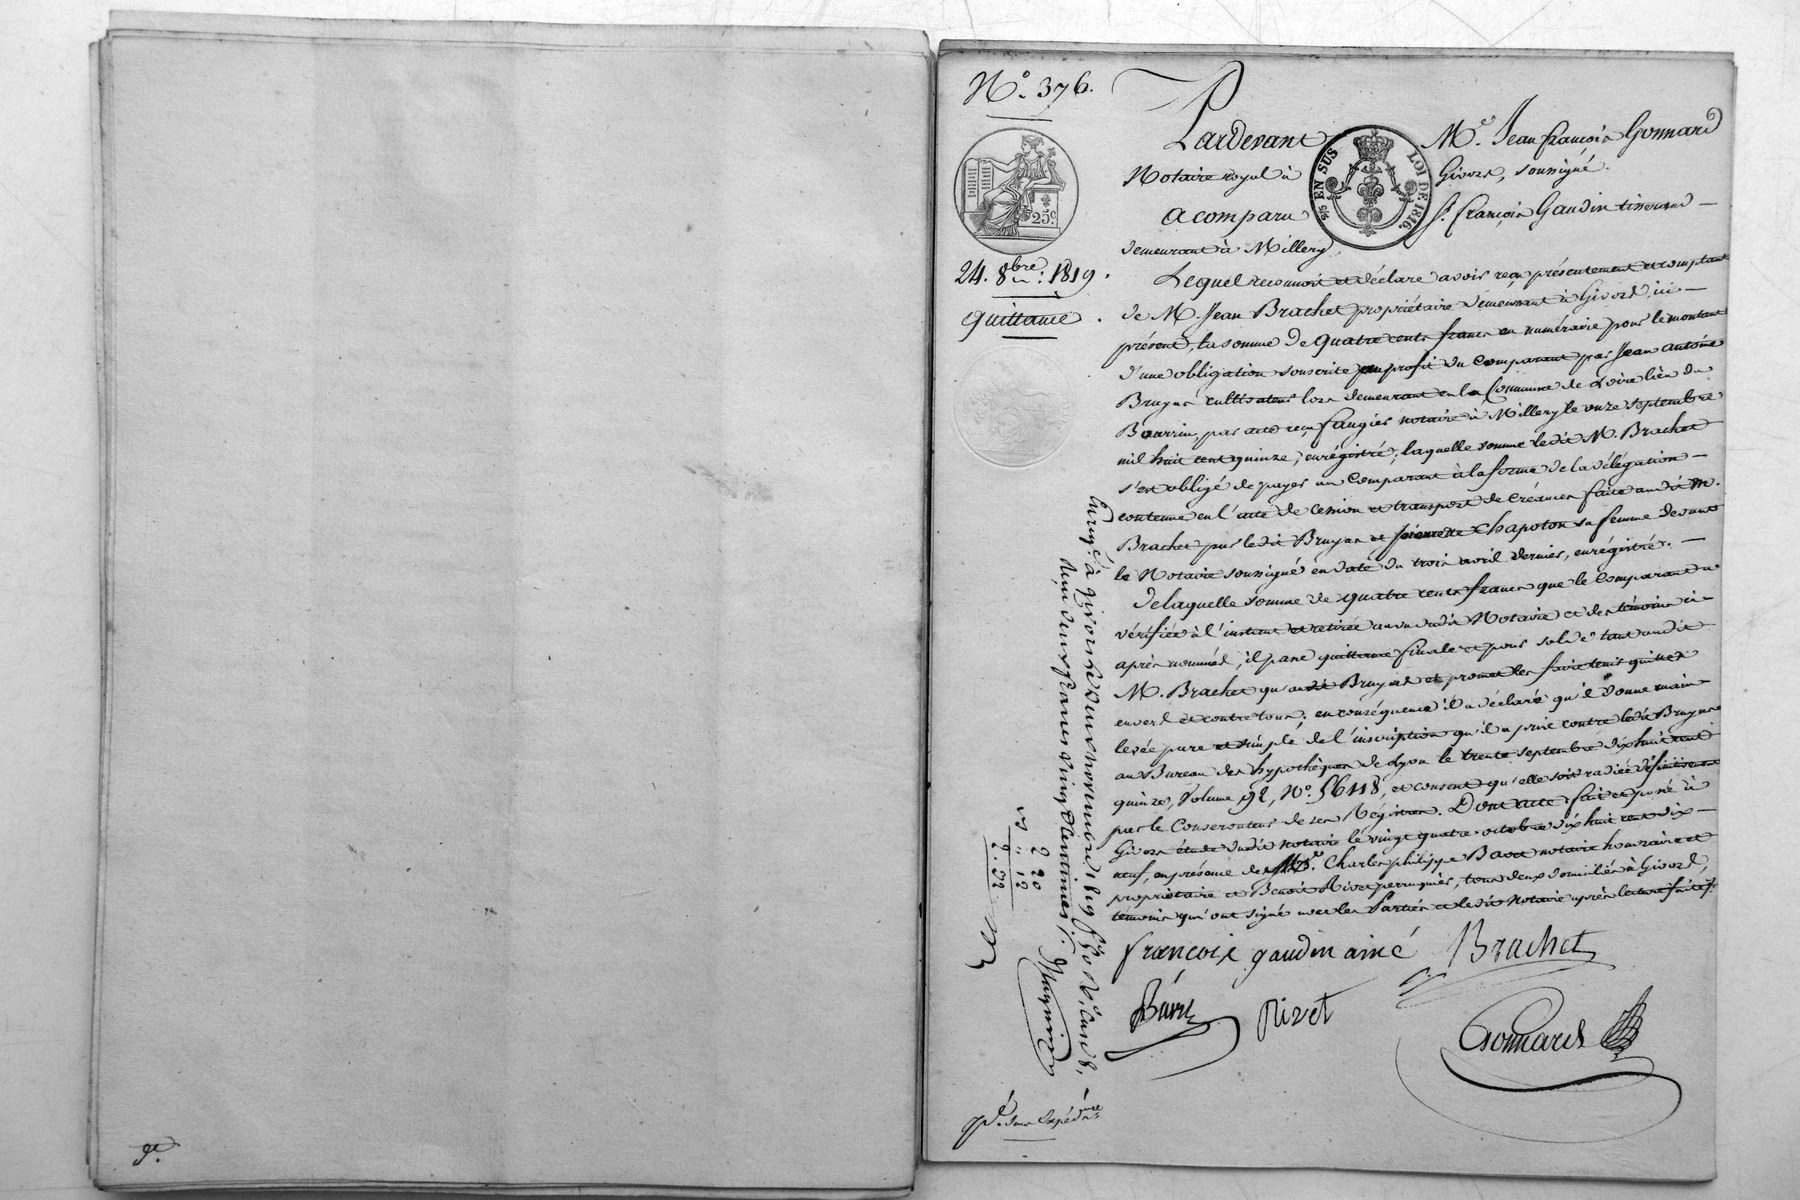 N.° 376.
Pardevant M.e Jean françois Gonnard
Notaire royal à Givors, soussigné.
A comparu S.r françois Gaudin tisserand
demeurant à Millery
25c.
5/15 EN SUS LOI DE 1816.
24. 8bre. 1819.
quittance.
Lequel reconnoit et déclare avoir reçu présentement et comptant
de M. Jean Brachet propriétaire demeurant à Givors, ici
présent, la somme de quatre cents francs en numéraire pour le montant
d'une obligation souscrite au profit du Comparant par Jean antoine
Bruyas cultivateur lors demeurant en la Commune de Loire lieu du
Bourrin, par acte reçu faugier notaire à Millery le onze septembre
mil huit cent quinze, enrégistré, laquelle somme ledit M. Brachet
s'est obligé de payer au Comparant à la forme de la délégation
contenue en l'acte de cession et transport de Créances faite audit M.
Brachet par ledit Bruyas et Chapoton sa femme devant
le Notaire soussigné en date du trois avril dernier, enrégistré.
De laquelle somme de quatre cents francs que le Comparant a
vérifiée à l'instant et retirée au vu dudit Notaire et des témoins ci-
après nommés, il passe quittance finale et pour solde tant audit
M. Brachet qu'audit Bruyas et promet les faire tenir quittes
envers et contre tous; en conséquence il a déclaré qu'il donne main
levée pure et simple de l'inscription qu'il a prise contre ledit Bruyas
au Bureau des hypothèques de Lyon le trente septembre dix huit cent
quinze, Volume 92, N.° 56118, et consent qu'elle soit radiée définitivement
par le Conservateur de ses Régistres. Dont acte fait et passé à
Givors étude dudit notaire le vingt quatre octobre dix huit cent dix
neuf, en présence de M.e Charles philippe Bavet notaire honoraire et
propriétaire et Benoit Rivet perruquier, tous deux domiciliés à Givors,
témoins qui ont signé avec les Parties et ledit Notaire après lecture faite.
françoix gaudin ainé Brachet
Rivet
Gonnard
Enreg.é à givors le deux novembre 1819 f.° 70 R.° Case 8.
Reçu deux francs vingt centimes
2
20
2. 20
12
2. 32
sur Expéd.